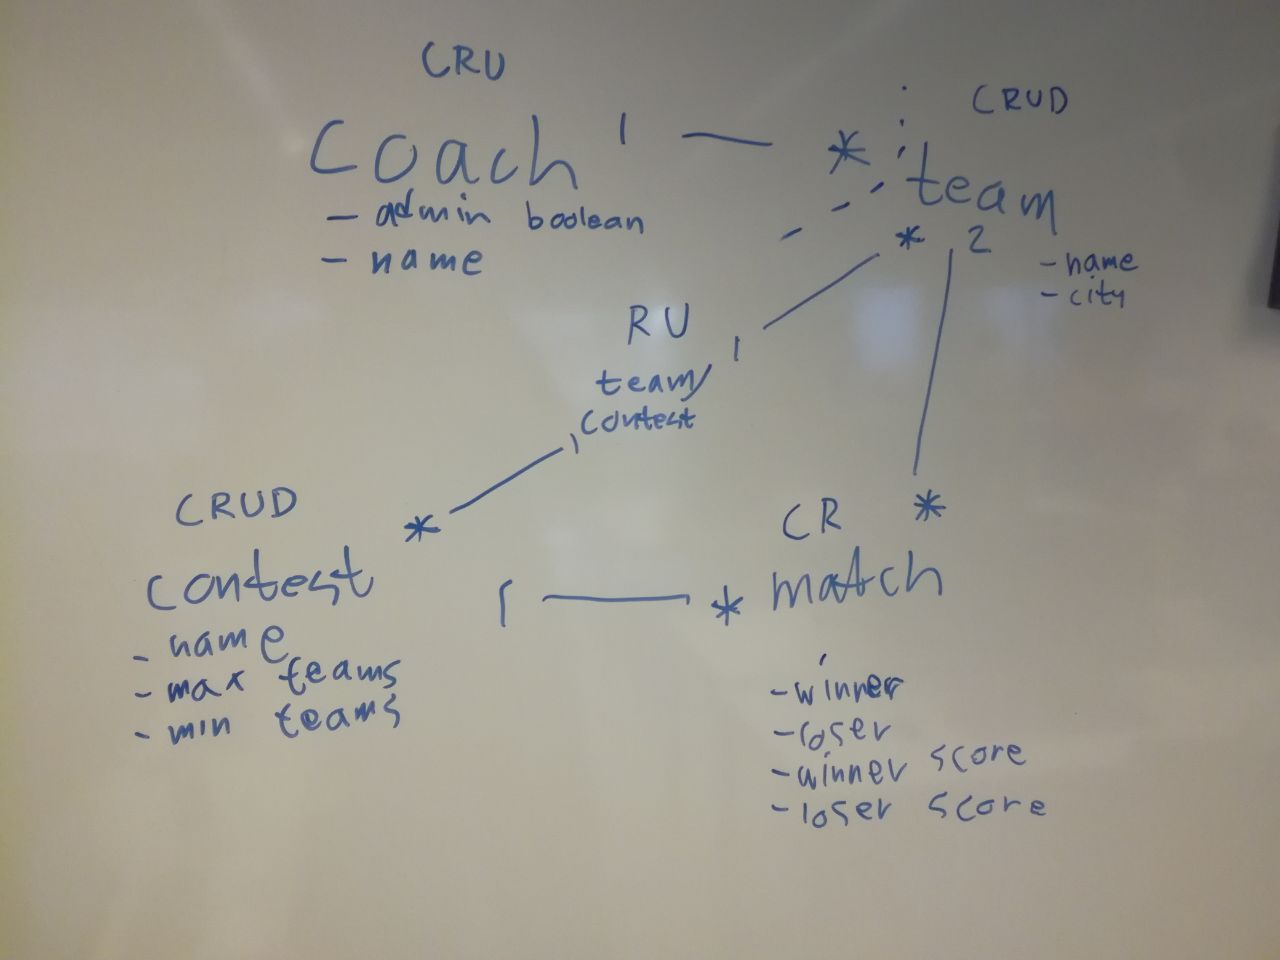 CRU
Coach 1 *
- admin boolean
- name
CRUD
team
* 2
- name
- city
RU
1
team/
contest
1
CRUD
*
contest
- name
- max teams
- min teams
1 *
CR
*
match
- winner
- loser
- winner score
- loser score